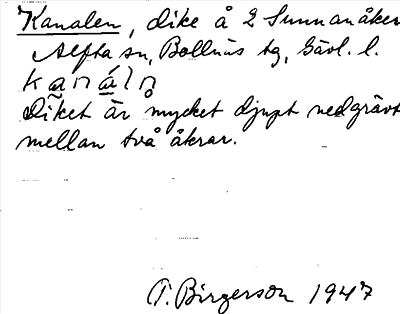 Kanalen, dike å 2 Sunnanåker
Alfta sn, Bollnäs tg, Gävl. l.
kanáln
Diket är mycket djupt nedgrävt
mellan två åkrar.
T. Birgerson 1947